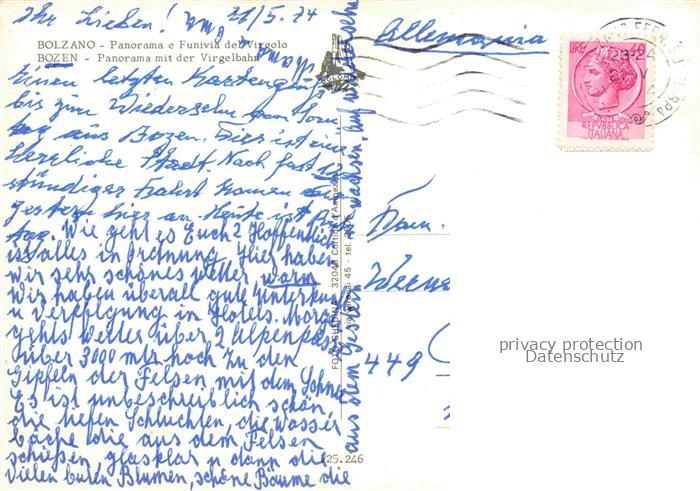 Ihr Lieben! 21/5.74
BOLZANO - Panorama e Funivia del Virgolo
BOZEN - Panorama mit der Virgelbahn
Einen letzten Kartengruß
bis zum Wiedersehn am
tag aus Bozen. Dies ist eine
herrliche Stadt. Nach fast 12
stündiger Fahrt kamen
gestern hier an. Heute ist
tag. Wie geht es Euch? Hoffentlich
ist alles in Ordnung. Hier haben
wir sehr schönes Wetter warm
Wir haben überall gute Unterkunft
u Verpflegung in Hotels. Morgen
gehts weiter über 2 Alpenpässe
über 3000 mtr hoch zu den
Gipfeln der Felsen mit dem Schnee
Es ist unbeschreiblich schön
die tiefen Schluchten, die Wasser
bäche die aus dem Felsen
schießen glasklar u dann die
vielen bunten Blumen, schöne Bäume die
aus dem Gestein wachsen. Auf Wiedersehn
Oma
FOTO GHEDINA - 32043 Cortina d'Ampezzo
45 - tel.
25.246
Allemagnia
LIRE 40
POSTE
REPVBBLICA
ITALIANA
23-24
Fam.
Werne
449
privacy protection
Datenschutz